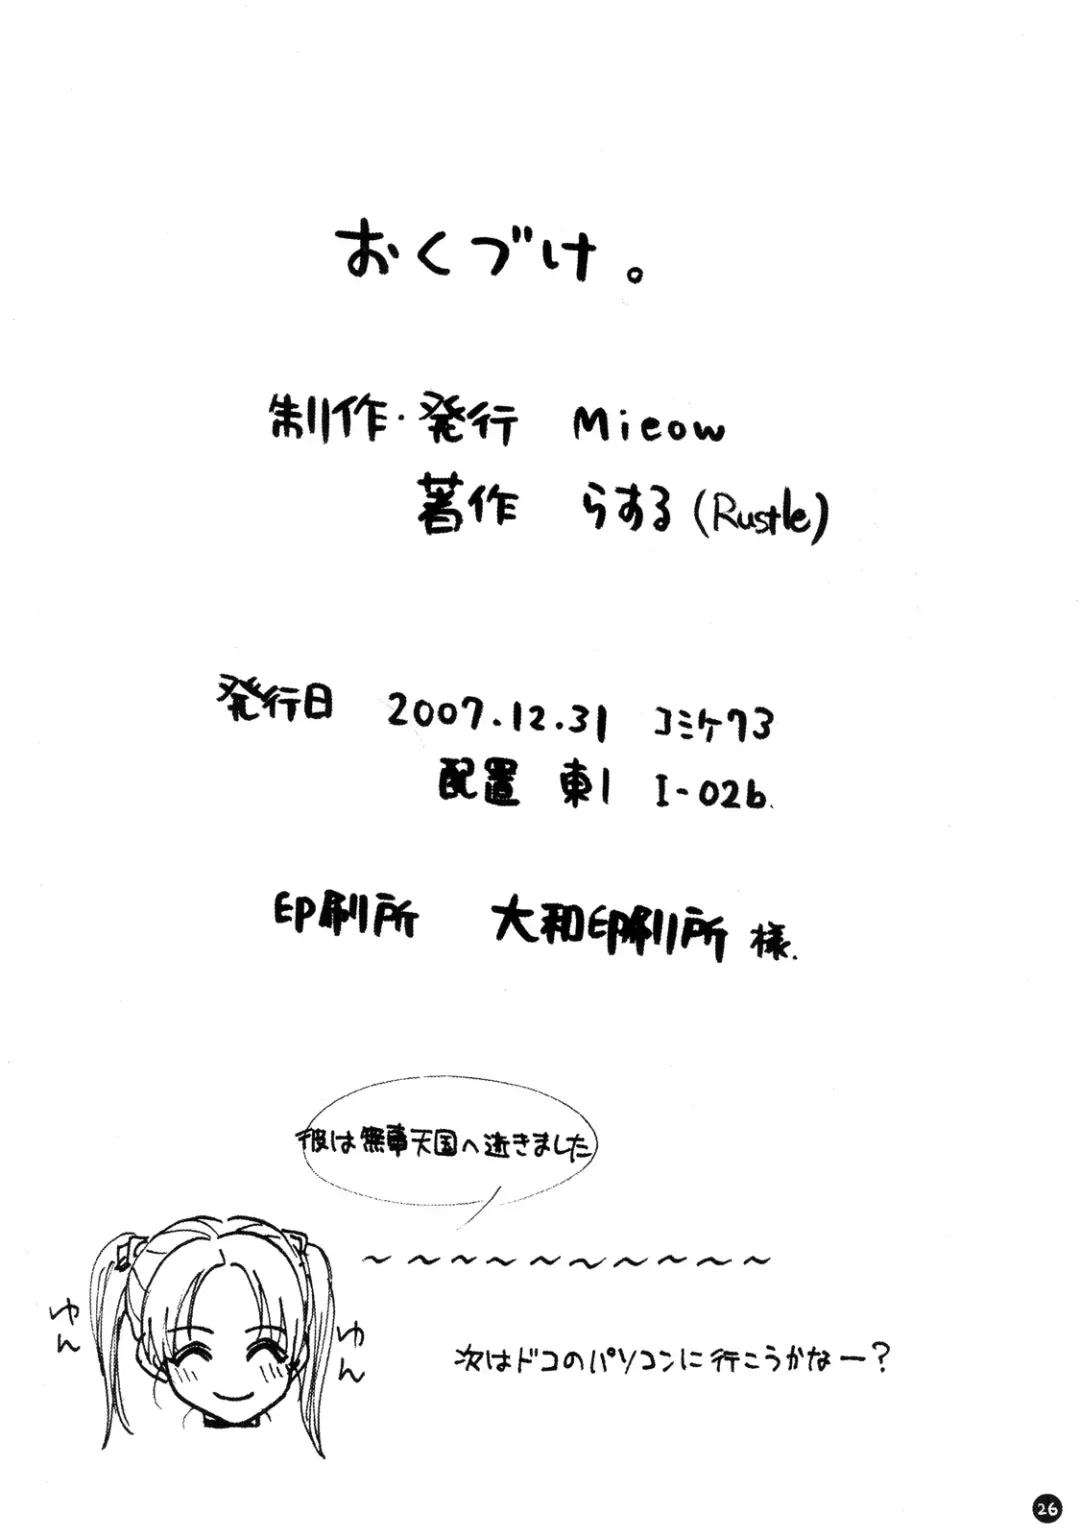 おくづけ。
制作・発行 Mieow
著作 らする(Rustle)
発行日 2007.12.31 コミケ73
配置 東1 I-02b.
印刷所 大和印刷所 様.
彼は無事天国へ逝きました
~~~~~~~~~~
ゆん
ゆん
次はドコのパソコンに行こうかなー?
26